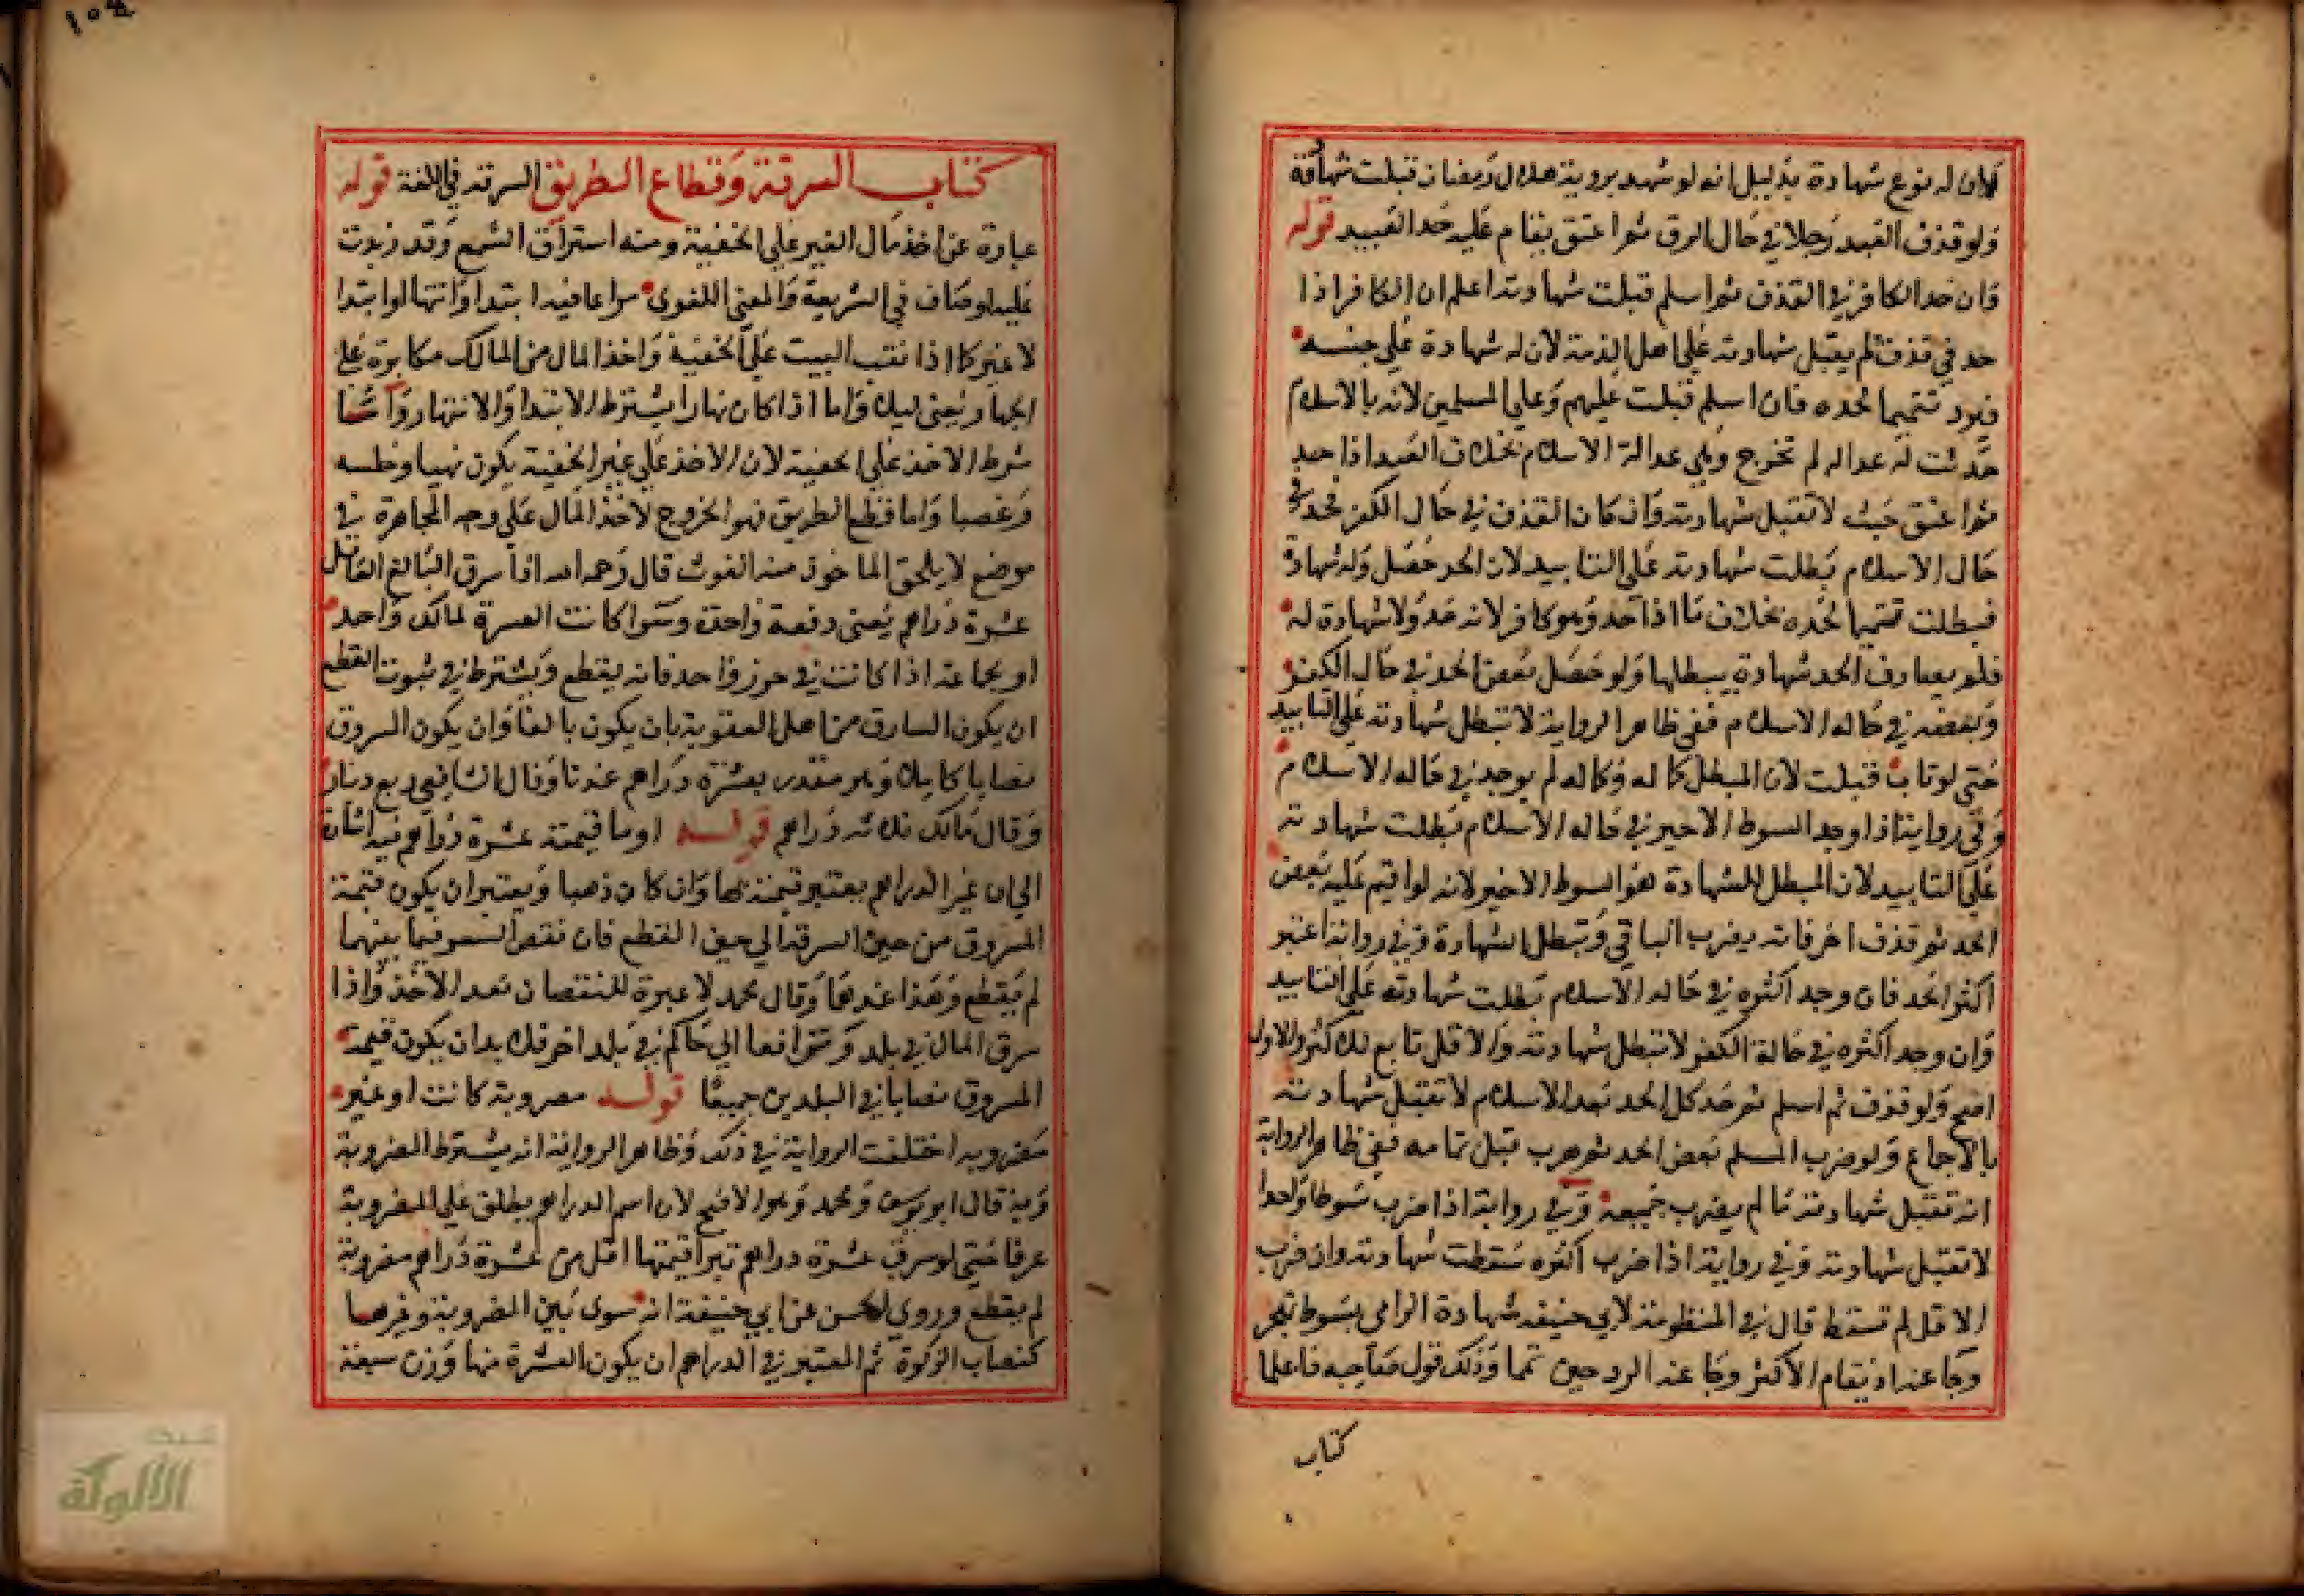 كان له نوع شهادة بدليل انه لو شهد بروية هلال رمضان قبلت شهادته
ولو قذف العبد رجلا في حال الرق ثم اعتق يقام عليه حد العبيد قوله
وان حد الكافر في القذف ثم اسلم قبلت شهادته اعلم ان الكافر اذا
حد في قذف لم يقبل شهادته على اهل الذمة لان له شهادة على جنسه
فيرد تتميما لحده فان اسلم قبلت عليهم وعلى المسلمين لانه بالاسلام
حدثت له عدالة لم تخرج وهي عدالة الاسلام بخلاف العبد اذا حد
ثم اعتق حيث لا تقبل شهادته وان كان القذف في حال الكفر فحد في
حال الاسلام بطلت شهادته على التابيد لان الحد حصل وله شهادة
فبطلت تتميما لحده بخلاف ما اذا حد وهو كافر لانه حد ولا شهادة له
فلم يصادف الحد شهادة يبطلها ولو حصل بعض الحد في حال الكفر
وبعضه في حالة الاسلام ففي ظاهر الرواية لا تبطل شهادته على التابيد
حتى لو تاب قبلت لان المبطل كماله وكماله لم يوجد في حالة الاسلام
وفي رواية اذا وجد السوط الاخير في حالة الاسلام بطلت شهادته
على التابيد لان المبطل للشهادة هو السوط الاخير لانه لو اقيم عليه بعض
الحد ثم قذف اخر فانه يضرب الباقي وتبطل الشهادة وفي رواية اعتبر
اكثر الحد فان وجد اكثره في حالة الاسلام بطلت شهادته على التابيد
وان وجد اكثره في حالة الكفر لا تبطل شهادته والاقل تابع للاكثر والاول
اصح ولو قذف ثم اسلم ثم حد كل الحد بعد الاسلام لا تقبل شهادته
بالاجماع ولو ضرب المسلم بعض الحد ثم هرب قبل تمامه ففي ظاهر الرواية
انه تقبل شهادته ما لم يضرب جميعه وفي رواية اذا ضرب سوطا واحدا
لا تقبل شهادته وفي رواية اذا ضرب اكثره سقطت شهادته وان ضرب
الاقل لم تسقط قال في المنظومة لابي حنيفة شهادة الرامي بسوط تجر
وذلك قول صاحبيه فاعلما
كتاب
١٥٤
كتاب السرقة وقطاع الطريق السرقة في اللغة قوله
عبارة عن اخذ مال الغير على الخفية ومنه استراق السمع وقد زيدت
عليه اوصاف في الشريعة والمعنى اللغوي مراعا فيه ابتدا وانتها او ابتدا
لا غير كما اذا نقب البيت على الخفية واخذ المال من المالك مكابرة على
الجهار يعني ليلا واما اذا كان نهارا يشترط الابتدا والانتها وانما
شرط الاخذ على الخفية لان الاخذ على غير الخفية يكون نهبا وخلسه
وغصبا واما قطع الطريق فهو الخروج لاخذ المال على وجه المجاهرة في
موضع لا يلحق الماخوذ منه الغوث قال رحمه الله اذا سرق البالغ العاقل
عشرة دراهم يعني دفعة واحدة وسوا كانت العشرة لمالك واحد
او لجماعة اذا كانت في حرز واحد فانه يقطع ويشترط في ثبوت القطع
ان يكون السارق من اهل العقوبة بان يكون بالغا وان يكون المسروق
نصابا كاملا وهو مقدر بعشرة دراهم عندنا وقال الشافعي ربع دينار
وقال مالك ثلاثة دراهم قوله او ما قيمته عشرة دراهم فيه اشارة
الى ان غير الدراهم يعتبر قيمته بها وان كان ذهبا ويعتبر ان يكون قيمة
المسروق من حين السرقة الى حين القطع فان نقص السعر فيما بينهما
لم يقطع وهذا عندهما وقال محمد لا عبرة للنقصان بعد الاخذ واذا
سرق المال في بلد وترافعا الى حاكم في بلد اخر فلا بد ان يكون قيمة
المسروق نصابا في البلدين جميعا قوله مضروبة كانت او غير
مضروبه اختلفت الرواية في ذلك وظاهر الرواية انه يشترط المضروبة
وبه قال ابو يوسف ومحمد وهو الاصح لان اسم الدراهم يطلق على المضروبة
عرفا حتى لو سرق عشرة دراهم تبرا قيمتها اقل من عشرة دراهم مضروبة
لم يقطع وروى الحسن عن ابي حنيفة انه سوى بين المضروبة وغيرها
كنصاب الزكوة ثم المعتبر في الدراهم ان يكون العشرة منها وزن سبعة
شبكة
الألوكة